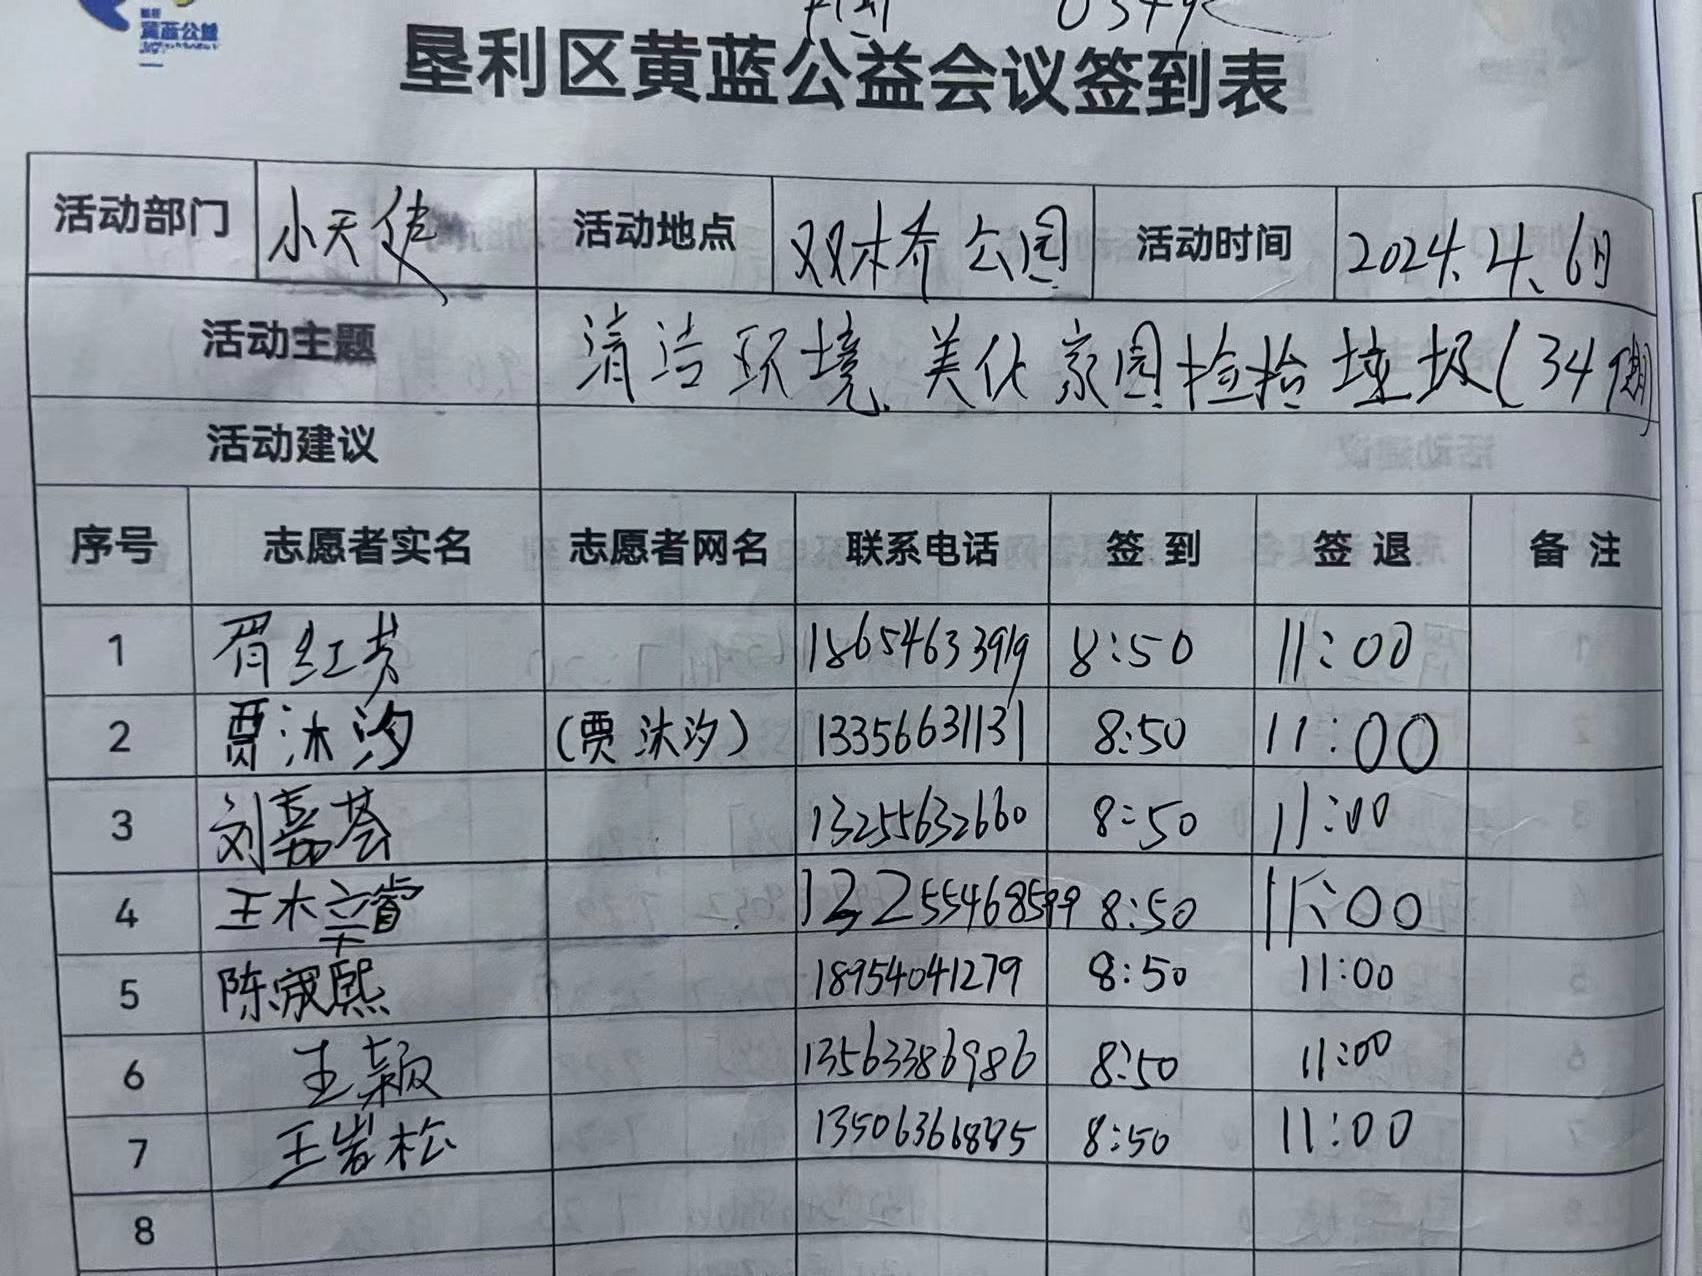 黄蓝公益
垦利区黄蓝公益会议签到表
活动部门 小天使 活动地点 双木桥公园 活动时间 2024.4.6月
活动主题 清洁环境美化家园捡捡垃圾(34期)
活动建议
序号 志愿者实名 志愿者网名 联系电话 签到 签退 备注
1 胥红芳 18654633919 8:50 11:00
2 贾沐汐 (贾沐汐) 13356631131 8:50 11:00
3 刘嘉荟 13255632660 8:50 11:00
4 王梓睿 8:50 11:00
5 陈宬熙 18954041279 8:50 11:00
6 王颖 13563386986 8:50 11:00
7 王岩松 13506366885 8:50 11:00
8